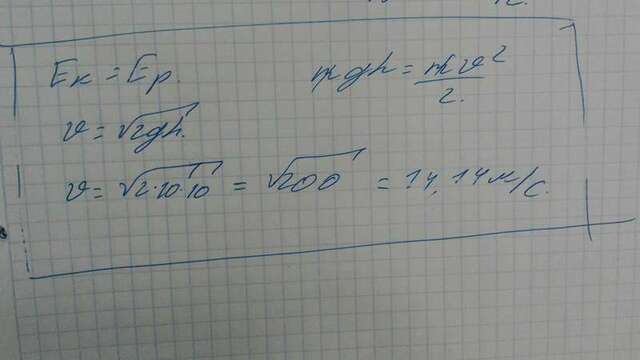 Eк = Ep. mgh = mv²/2.
v = √2gh.
v = √2·10·10 = √200 = 14,14 м/с.